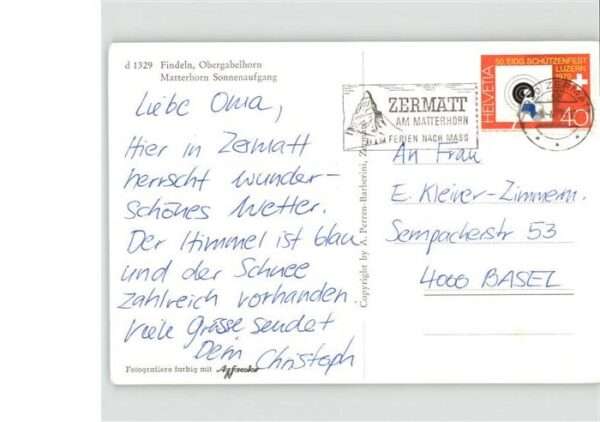 d 1329 Findeln, Obergabelhorn
Matterhorn Sonnenaufgang
Liebe Oma,
Hier in Zermatt
herrscht wunder-
schönes Wetter.
Der Himmel ist blau
und der Schnee
zahlreich vorhanden.
Viele Grüsse sendet
Dein Christoph
Fotografiere farbig mit Agfacolor
Copyright by A. Perren-Barberini, Zermatt
ZERMATT
AM MATTERHORN
FERIEN NACH MASS
HELVETIA
50. EIDG. SCHÜTZENFEST
LUZERN
1979
40
An Frau
E. Kleiner-Zimmerm.
Sempacherstr 53
4000 BASEL